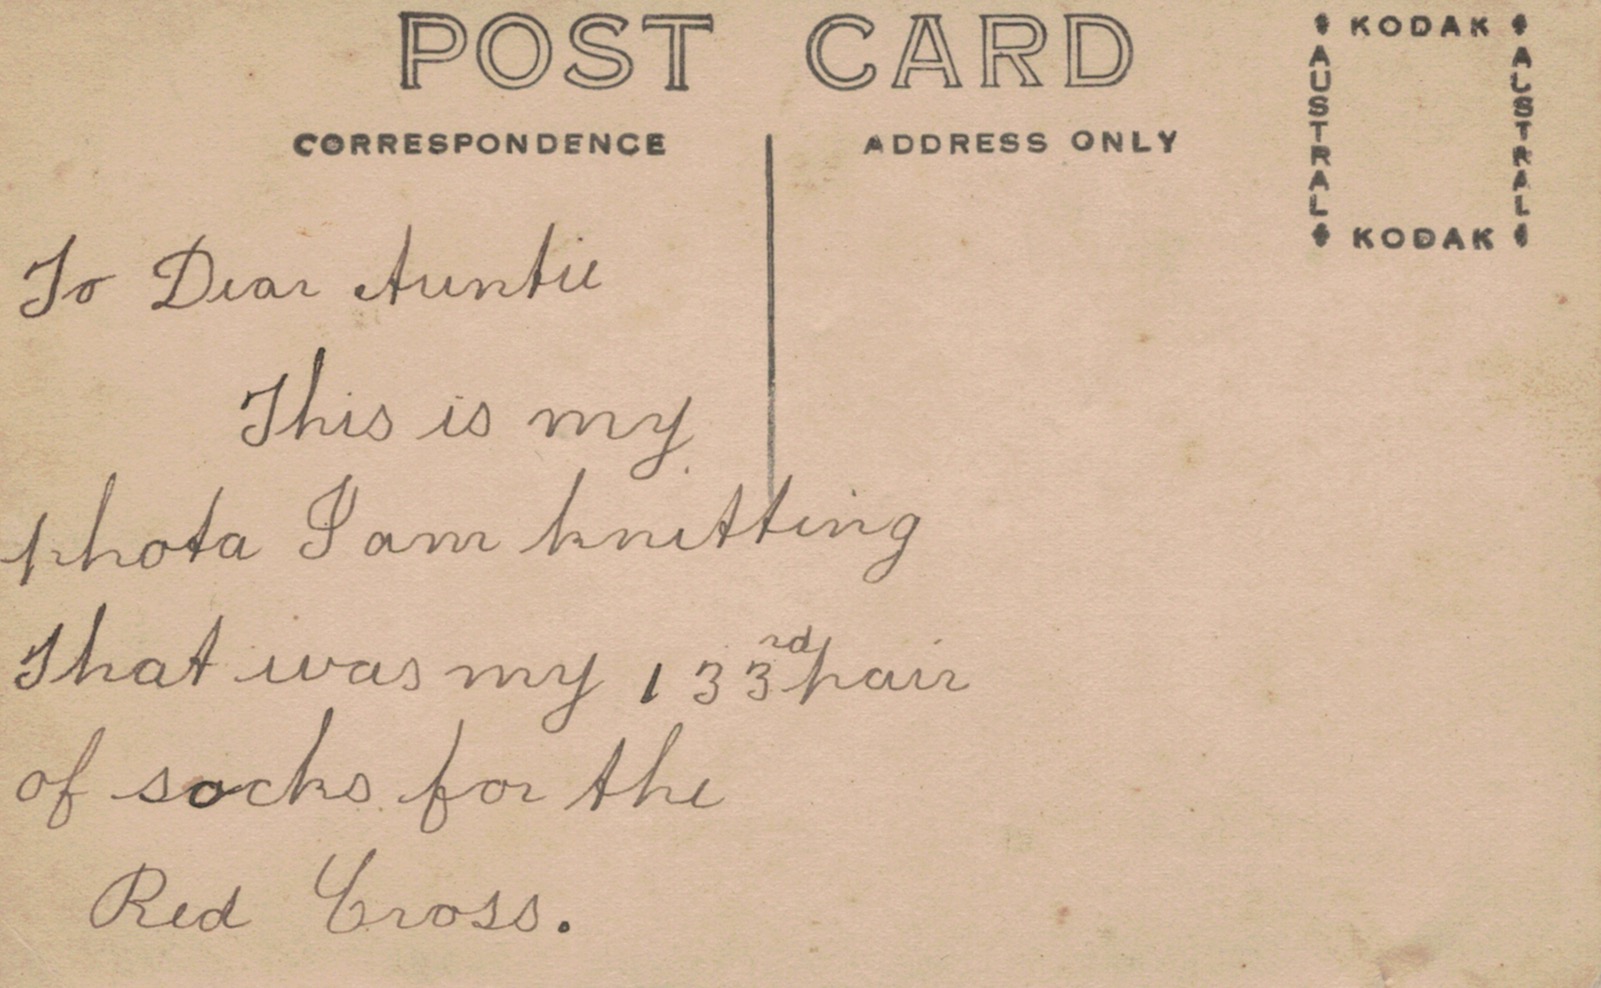 POST CARD
CORRESPONDENCE
ADDRESS ONLY
KODAK
AUSTRAL
AUSTRAL
KODAK
To Dear Auntie
This is my
phota I am knitting
That was my 133rd pair
of socks for the
Red Cross.